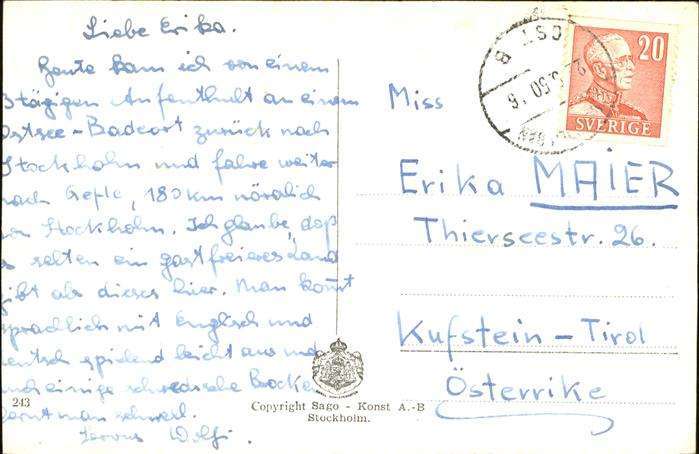 Liebe Erika.
Heute kam ich von einem
3 tägigen Aufenthalt an einem
Ostsee-Badeort zurück nach
Stockholm und fahre weiter
nach Gefle, 180 km nördlich
von Stockholm. Ich glaube, daß
es selten ein gastfreieres Land
gibt als dieses hier. Man kommt
sprachlich mit Englisch und
Deutsch spielend leicht aus und
auch einige schwedische Brocken
lernt man schnell.
Servus Wolfi.
243
Miss
Erika MAIER
Thierseestr. 26.
Kufstein - Tirol
Österrike
Copyright Sago - Konst A.-B
Stockholm.
20
SVERIGE
ÖST
B